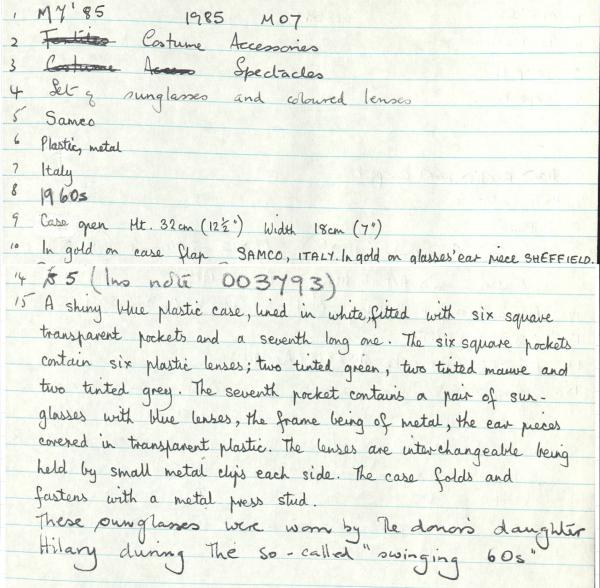 1 MY'85 1985 M07
2 Textiles Costume Accessories
3 Costume Access Spectacles
4 Set of sunglasses and coloured lenses
5 Samco
6 Plastic, metal
7 Italy
8 1960s
9 Case open Ht. 32cm (12½") Width 18cm (7")
10 In gold on case flap - SAMCO, ITALY. In gold on glasses' ear piece SHEFFIELD.
14 £5 (Ins note 003793)
15 A shiny blue plastic case, lined in white, fitted with six square
transparent pockets and a seventh long one. The six square pockets
contain six plastic lenses; two tinted green, two tinted mauve and
two tinted grey. The seventh pocket contains a pair of sun-
glasses with blue lenses, the frame being of metal, the ear pieces
covered in transparent plastic. The lenses are interchangeable being
held by small metal clips each side. The case folds and
fastens with a metal press stud.
These sunglasses were worn by the donor's daughter
Hilary during the so-called "swinging 60s"